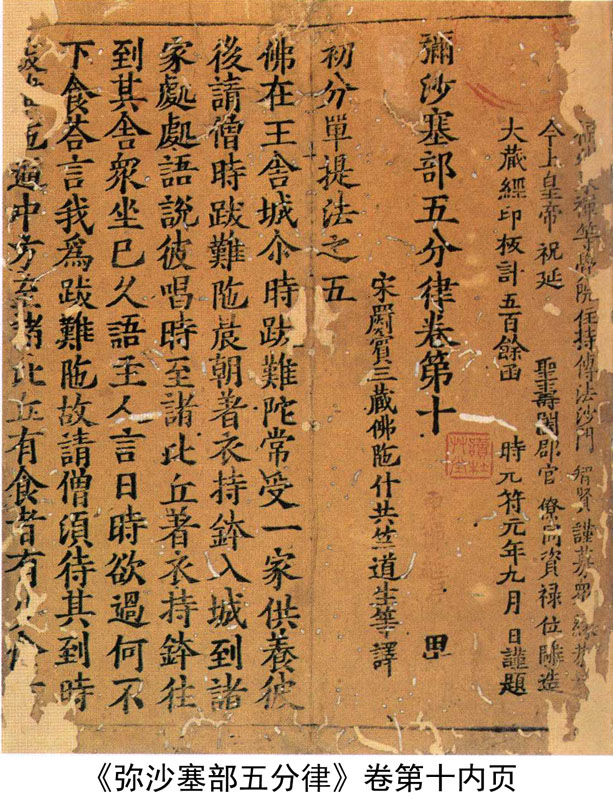 禪等覺院住持傳法沙門 智賢 謹募眾緣
今上皇帝 祝延 聖壽闔郡官 僚同資祿位雕造
大藏經印板計五百餘函 時元符元年九月 日謹題
彌沙塞部五分律卷第十 思
宋罽賓三藏佛陁什共竺道生等譯
初分單提法之五
佛在王舍城尒時跋難陀常受一家供養彼
後請僧時跋難陁晨朝著衣持鉢入城到諸
家處處語說彼唱時至諸比丘著衣持鉢往
到其舍衆坐已久語主人言日時欲過何不
下食荅言我爲跋難陁故請僧須待其到時
陁適中方至諸比丘有食者有
《弥沙塞部五分律》卷第十内页